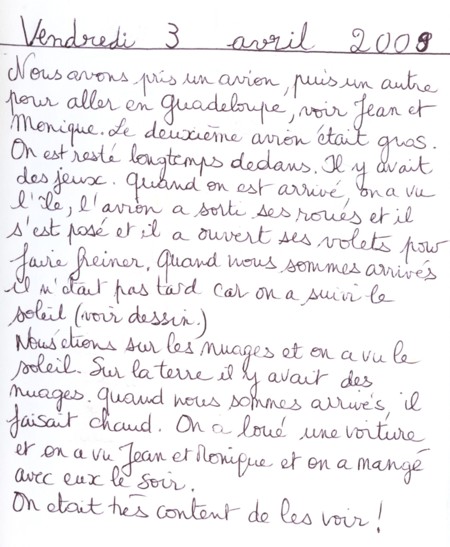 Vendredi 3 avril 2009
Nous avons pris un avion, puis un autre
pour aller en Guadeloupe, voir Jean et
Monique. Le deuxième avion était gros.
On est resté longtemps dedans. Il y avait
des jeux. Quand on est arrivé, on a vu
l'île, l'avion a sorti ses roues et il
s'est posé et il a ouvert ses volets pour
faire freiner. Quand nous sommes arrivés
il n'était pas tard car on a suivi le
soleil (voir dessin.)
Nous étions sur les nuages et on a vu le
soleil. Sur la terre il y avait des
nuages. Quand nous sommes arrivés, il
faisait chaud. On a loué une voiture
et on a vu Jean et Monique et on a mangé
avec eux le soir.
On etait très content de les voir !